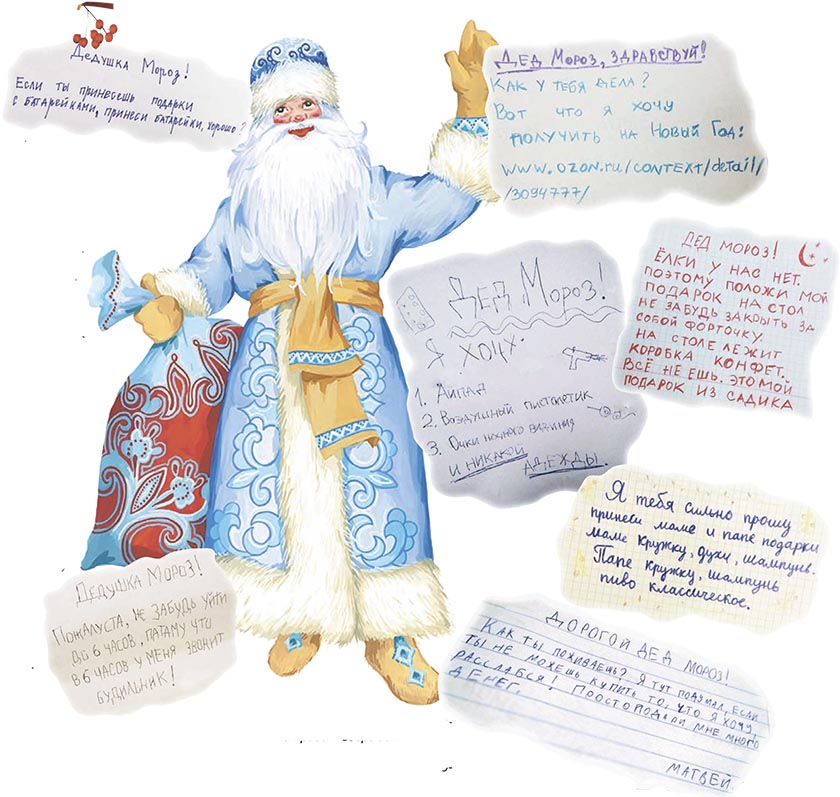 Дедушка Мороз!
Если ты принесешь подарки
с батарейками, принеси батарейки, хорошо?
Дед Мороз, здравствуй!
Как у тебя дела?
Вот что я хочу
получить на Новый Год:
www.ozon.ru/context/detail/
/3094777/
Дед Мороз!
Я хочу:
1. Айпад
2. Воздушный пистолетик
3. Очки ночного видиния
и никакой адежды.
ДЕД МОРОЗ!
ЁЛКИ У НАС НЕТ.
ПОЭТОМУ ПОЛОЖИ МОЙ
ПОДАРОК НА СТОЛ
НЕ ЗАБУДЬ ЗАКРЫТЬ ЗА
СОБОЙ ФОРТОЧКУ.
НА СТОЛЕ ЛЕЖИТ
КОРОБКА КОНФЕТ.
ВСЁ НЕ ЕШЬ. ЭТО МОЙ
ПОДАРОК ИЗ САДИКА
Я тебя сильно прошу
принеси маме и папе подарки
маме кружку, духи, шампунь.
Папе кружку, шампунь
пиво классическое.
Дедушка Мороз!
Пожалуста, не забудь уйти
до 6 часов, патаму что
в 6 часов у меня звонит
будильник!
Дорогой Дед Мороз!
Как ты поживаешь? Я тут подумал, если
ты не можешь купить то, что я хочу,
расслабся! Просто подари мне много
денег.
Матвей.